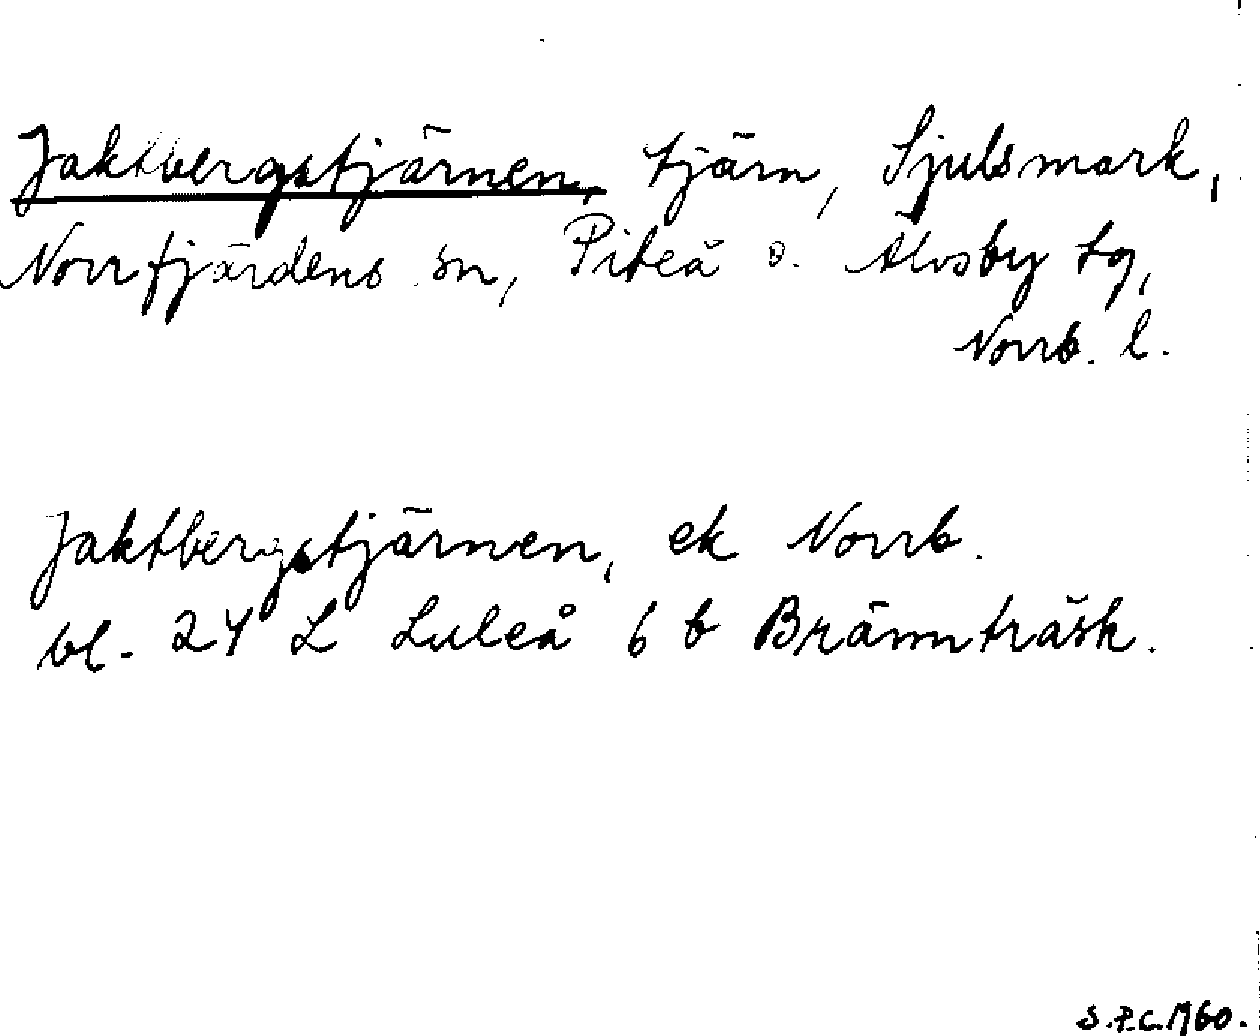 Jaktbergstjärnen, tjärn, Sjulsmark,
Norrfjärdens sn, Piteå o. Älvsby tg,
Norrb. l.
Jaktbergstjärnen, ek Norrb.
bl. 24 L Luleå 6 b Brännträsk.
S.P.C. 1960.